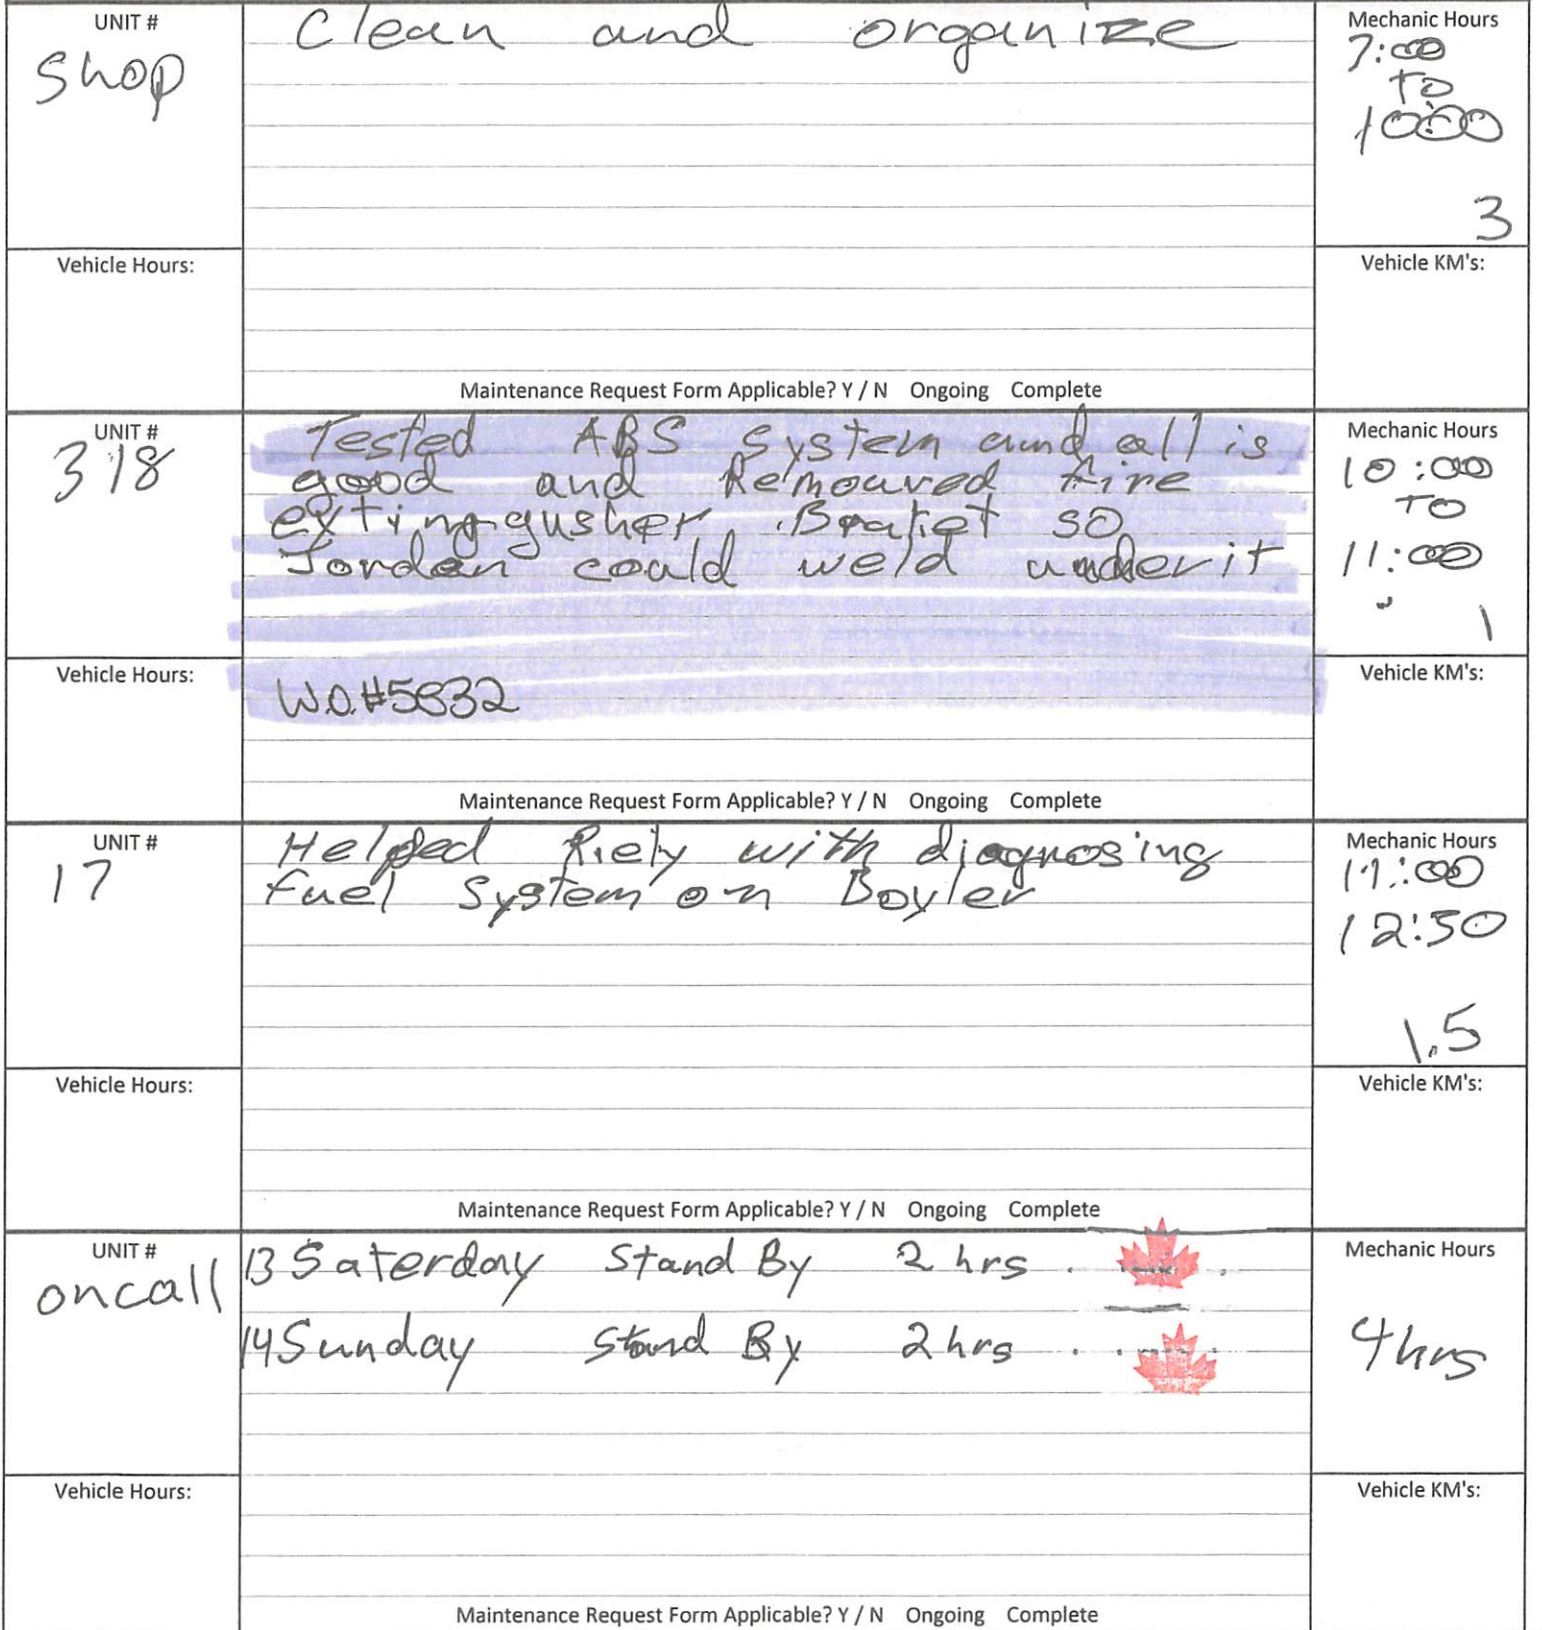 UNIT #
Shop
Clean and organize
Mechanic Hours
7:00
TO
10:00
3
Vehicle Hours:
Vehicle KM's:
Maintenance Request Form Applicable? Y / N Ongoing Complete
UNIT #
318
Tested ABS System and all is
good and Remouved fire
extingusher Braket so
Jordan could weld under it
W.O.#5832
Mechanic Hours
10:00
TO
11:00
1
Vehicle Hours:
Vehicle KM's:
Maintenance Request Form Applicable? Y / N Ongoing Complete
UNIT #
17
Helped Riely with diagnosing
fuel System on Boyler
Mechanic Hours
11:00
12:30
1.5
Vehicle Hours:
Vehicle KM's:
Maintenance Request Form Applicable? Y / N Ongoing Complete
UNIT #
oncall
13 Saterday Stand By 2 hrs
14 Sunday Stand By 2 hrs
Mechanic Hours
4 hrs
Vehicle Hours:
Vehicle KM's:
Maintenance Request Form Applicable? Y / N Ongoing Complete